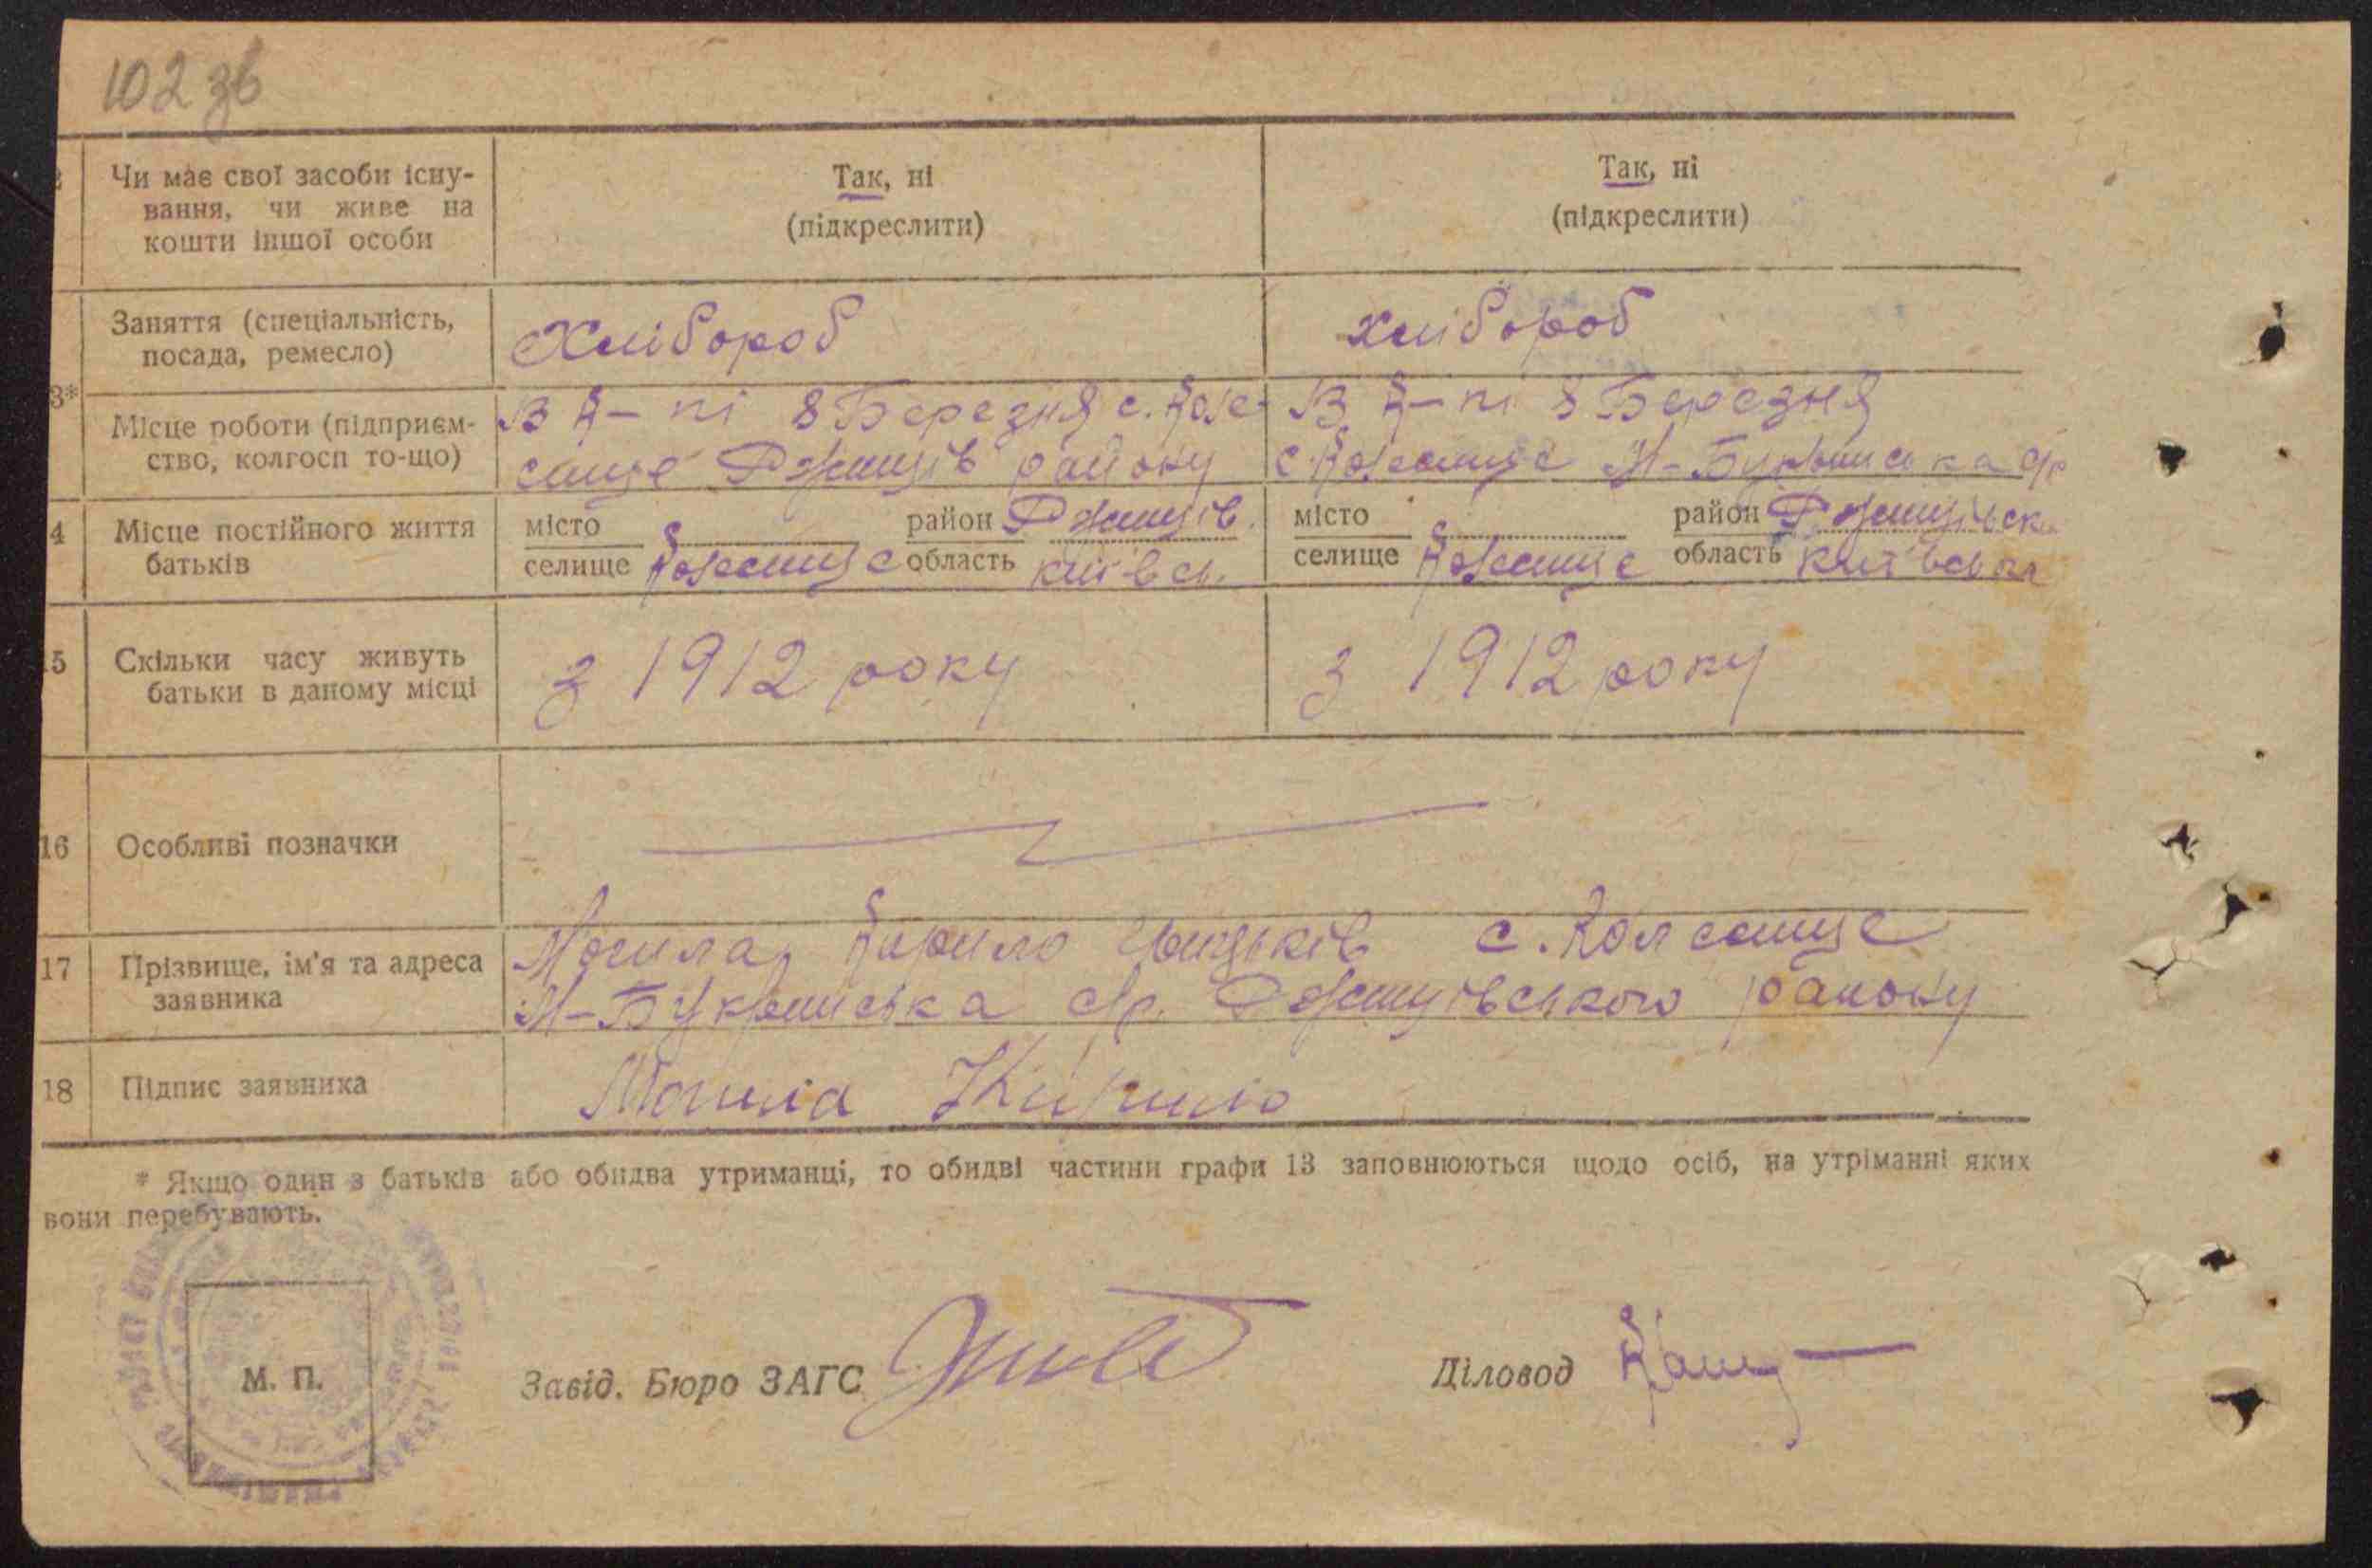 102 зв
Чи має свої засоби існу-
вання, чи живе на
кошти іншої особи
Так, ні
(підкреслити)
Так, ні
(підкреслити)
Заняття (спеціальність,
посада, ремесло)
Хлібороб
хлібороб
3*
Місце роботи (підприєм-
ство, колгосп то-що)
В К-пі 8 Березня с.
Ржищів району
В К-пі 8 Березня
с. М-Букринська с/р
4
Місце постійного життя
батьків
місто
селище
район Ржищів.
область київсь.
місто
селище
район Ржищівськ
область київська
15
Скільки часу живуть
батьки в даному місці
з 1912 року
з 1912 року
16
Особливі позначки
17
Прізвище, ім'я та адреса
заявника
Могила Кирило с.
М-Букринська с/р. Ржищівського району
18
Підпис заявника
Могила Кирило
* Якщо один з батьків або обидва утриманці, то обидві частини графи 13 заповнюються щодо осіб, на утріманні яких
вони перебувають.
М. П.
Завід. Бюро ЗАГС
Діловод